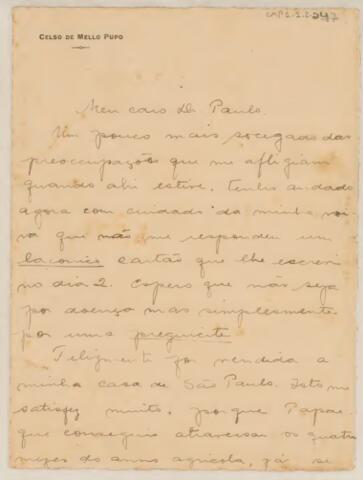 CAP 2.2.2.247
CELSO DE MELLO PUPO
Meu caro Dr. Paulo.
Um pouco mais socegado das
preoccupações que me afligiam
quando ahi estive, tenho andado
agora com cuidado da minha noi
va que não me respondeu um
laconico cartão que lhe escrevi
no dia 2. Espero que não seja
por doença mas simplesmente
por uma preguicite.
Felizmente foi vendida a
minha casa de São Paulo. Isto me
satisfez muito, porque Papae
que conseguio atravessar os quatro
mezes do anno agricola, já se